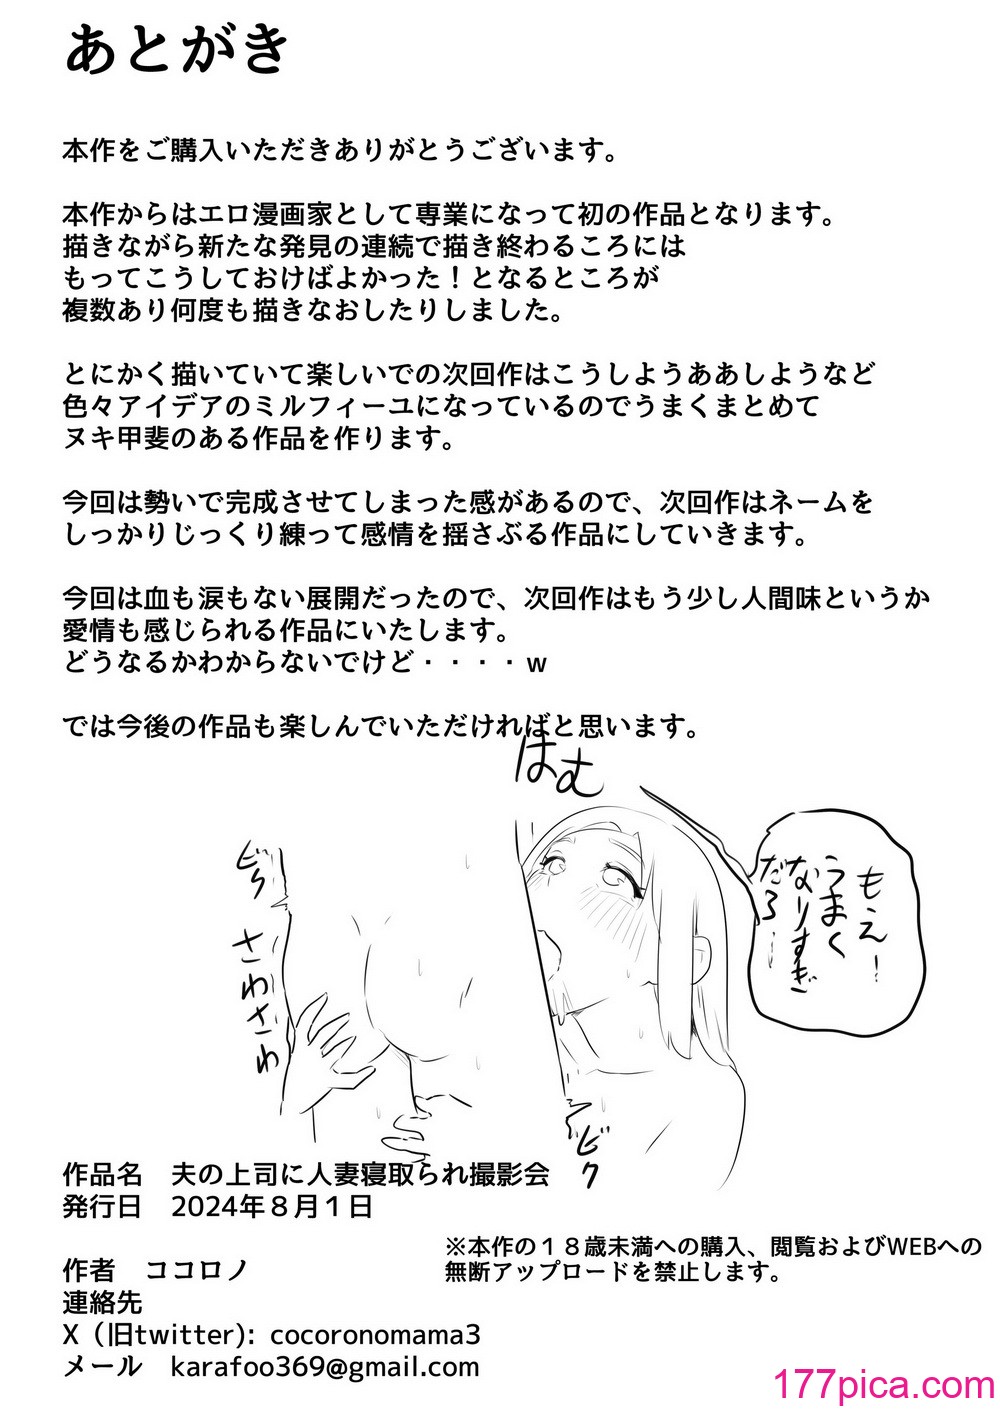 あとがき
本作をご購入いただきありがとうございます。
本作からはエロ漫画家として専業になって初の作品となります。
描きながら新たな発見の連続で描き終わるころには
もってこうしておけばよかった！となるところが
複数あり何度も描きなおしたりしました。
とにかく描いていて楽しいでの次回作はこうしようああしようなど
色々アイデアのミルフィーユになっているのでうまくまとめて
ヌキ甲斐のある作品を作ります。
今回は勢いで完成させてしまった感があるので、次回作はネームを
しっかりじっくり練って感情を揺さぶる作品にしていきます。
今回は血も涙もない展開だったので、次回作はもう少し人間味というか
愛情も感じられる作品にいたします。
どうなるかわからないでけど・・・・w
では今後の作品も楽しんでいただければと思います。
はむ
もえ！
うまく
なりすぎ
だろ…
ビク
さわさわ
ビク
作品名　夫の上司に人妻寝取られ撮影会
発行日　2024年８月１日
※本作の１８歳未満への購入、閲覧およびWEBへの
無断アップロードを禁止します。
作者　ココロノ
連絡先
X（旧twitter): cocoronomama3
メール　karafoo369@gmail.com
177pica.com